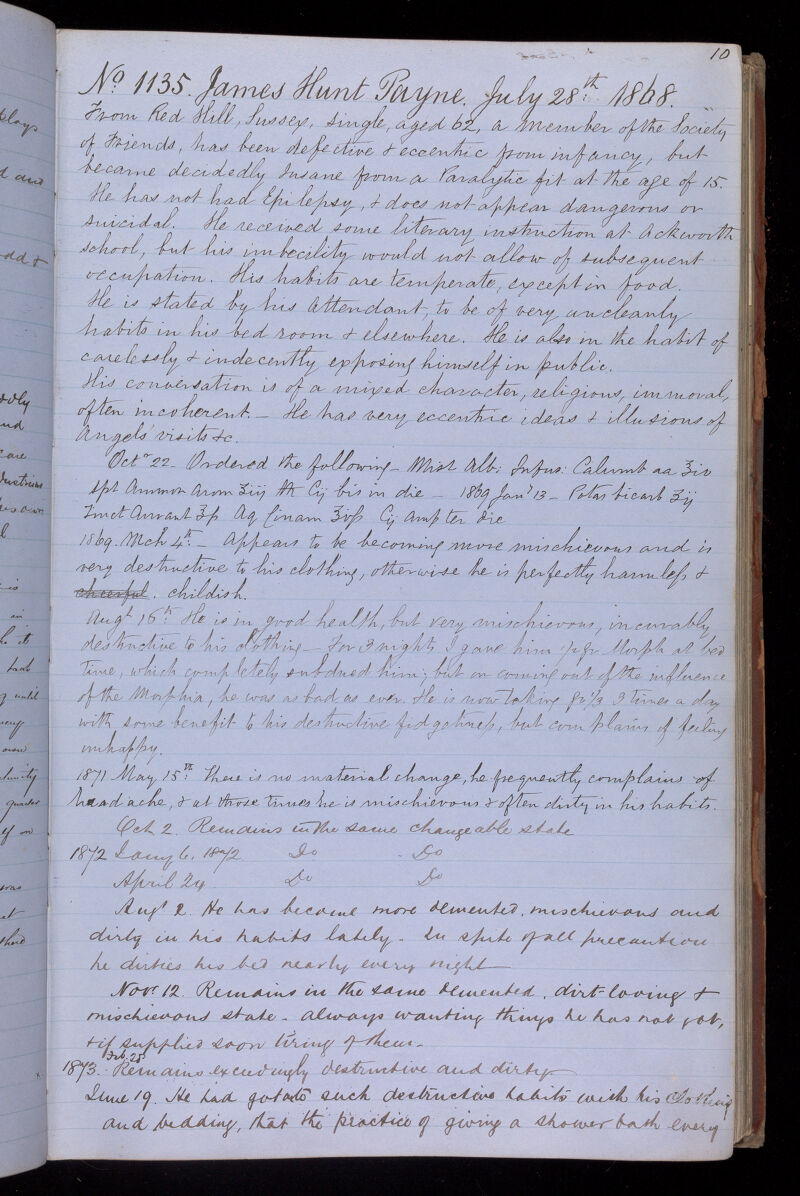 10
No. 1135. James Hunt Payne. July 28th 1868.
From Red Hill, Sussex, single, aged 62, a member of the Society
of Friends, has been defective & eccentric from infancy, but
became decidedly Insane from a Paralytic fit at the age of 15.
He has not had Epilepsy, & does not appear dangerous or
suicidal. He received some literary instruction at Ackworth
school, but his imbecility would not allow of subsequent
occupation. His habits are temperate, except in food.
He is stated by his Attendant, to be of very uncleanly
habits in his bed room & elsewhere. He is also in the habit of
carelessly & indecently exposing himself in public.
His conversation is of a mixed character, religious, immoral,
often incoherent. – He has very eccentric ideas & illusions of
Angels' visits &c.
Octr 22 – Ordered the following – Mist Alb: Infus: Calumb aa ℥iv
Spt Ammon Arom ʒiij Cij bis in die – 1869 Jany 13 – Potas bicarb ʒij
Tinct Aurant Aq Cinam Cij Amp ter die
1869. Mch 4th – Appears to be becoming more mischievous and is
very destructive to his clothing, otherwise he is perfectly harmless &
cheerful. childish.
Augt 16th He is in good health, but very mischievous, incurably
destructive to his clothing – For 3 nights I gave him gr Morph at bed
time, which completely subdued him; but on coming out of the influence
of the Morphia, he was as bad as ever. He is now taking 3 times a day
with some benefit to his destructive fidgetiness, but complains of feeling
unhappy.
1871 May 15th There is no material change, he frequently complains of
head ache, & at those times he is mischievous & often dirty in his habits.
Oct 2. Remains in the same changeable state
1872 Jany 6. 1872 Do Do
April 24 Do Do
Augt 2. He has become more demented, mischievous and
dirty in his habits lately. In spite of all precaution
he dirties his bed nearly every night –
Novr 12. Remains in the same demented, dirt-loving &
mischievous state – always wanting things he has not got,
& if supplied soon tiring of them –
1873. Feb. 25 Remains exceedingly destructive and dirty
June 19. He had got into such destructive habits with his clothing
and bedding, that the practice of giving a shower bath every